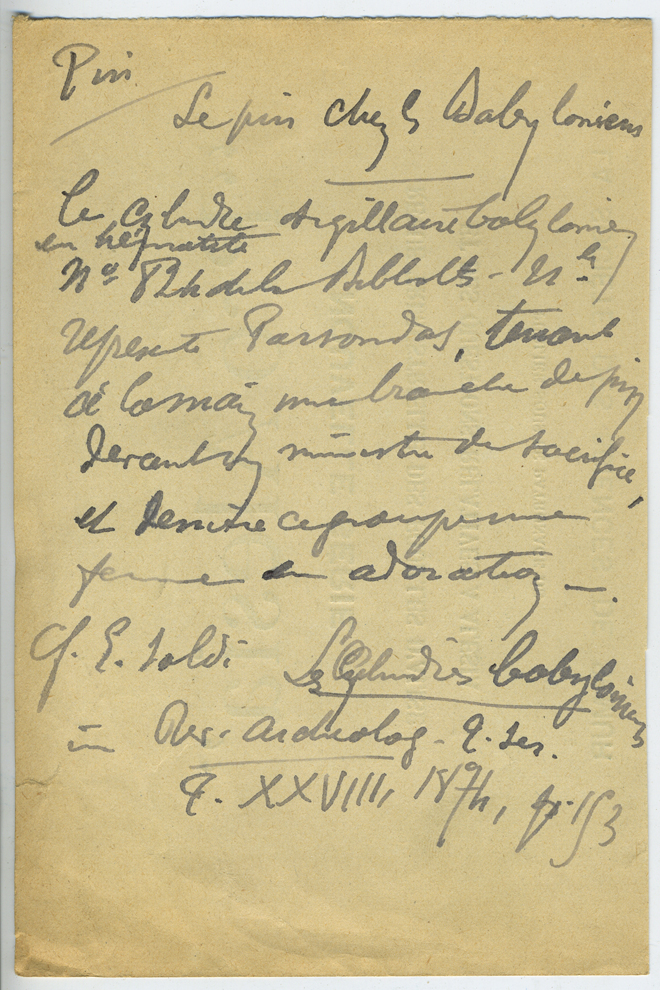 Pin
Le pin chez ls Babyloniens
le cylindre argillaire babylonien
en hématite
Nº de la Biblioth - Nle
repésente Parsondas, tenant
à la main une branche de pin
devant un ministre du sacrifice,
et derrière ce groupe une
femme en adoration —.
Cf. E. Soldi Les Cylindres babyloniens
in Rev. Archéolog. 2. ser.
T. XXVIII, 1874, p. 153